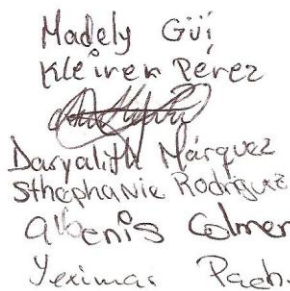 Madely Güi
Kleiren Pérez
Daryalith Márquez
Sthephanie Rodríguez
Albenis Colmer
Yeximar Pach